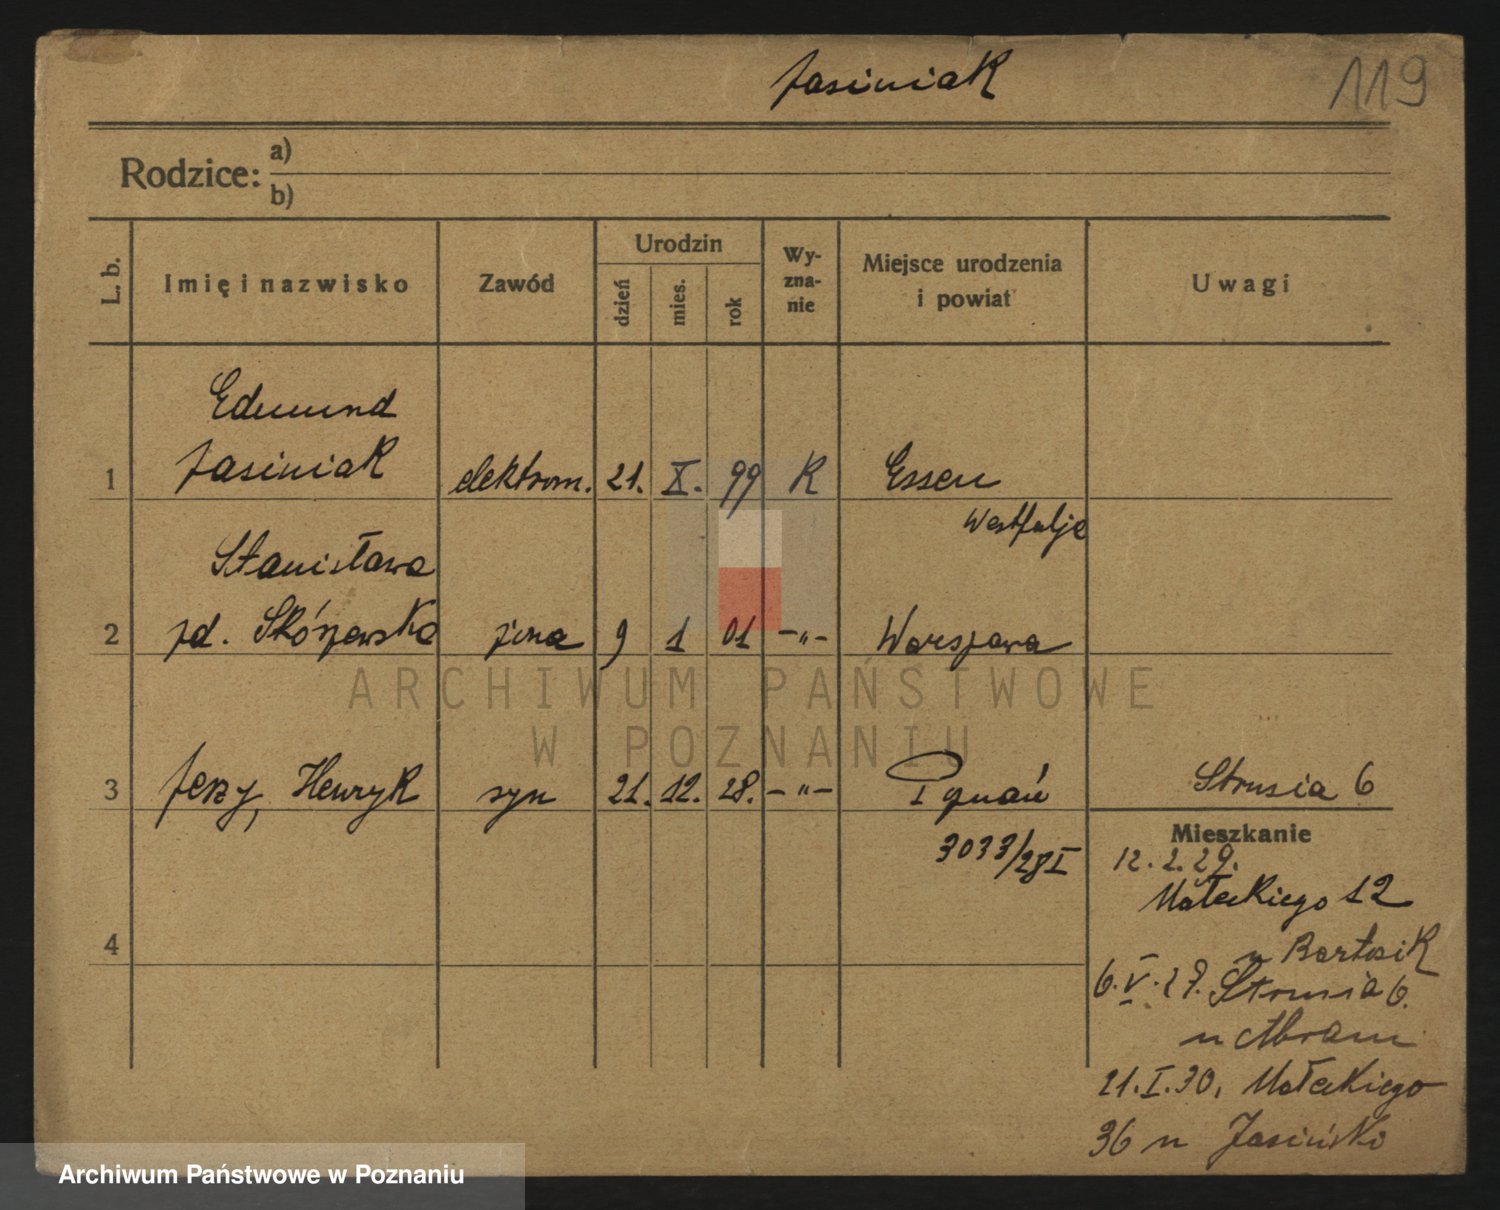 Jasiniak
119
Rodzice: a)
b)
L. b. Imię i nazwisko Zawód Urodzin dzień mies. rok Wy-zna-nie Miejsce urodzenia i powiat Uwagi
Edmund
1 Jasiniak elektrom. 21. X. 99 K Essen
Westfalje
Stanisława
2 zd. Skórzewska żona 9 1 01 -"- Warszawa
ARCHIWUM PAŃSTWOWE
W POZNANIU
3 Jerzy, Henryk syn 21. 12. 28. -"- Poznań Strusia 6
Mieszkanie
3033/28 I 12. 2. 29.
Małeckiego 12
4 u Bartosik
6. V. 29. Strusia 6.
u Abram
21. I. 30. Małeckiego
36 u Jasiński
Archiwum Państwowe w Poznaniu